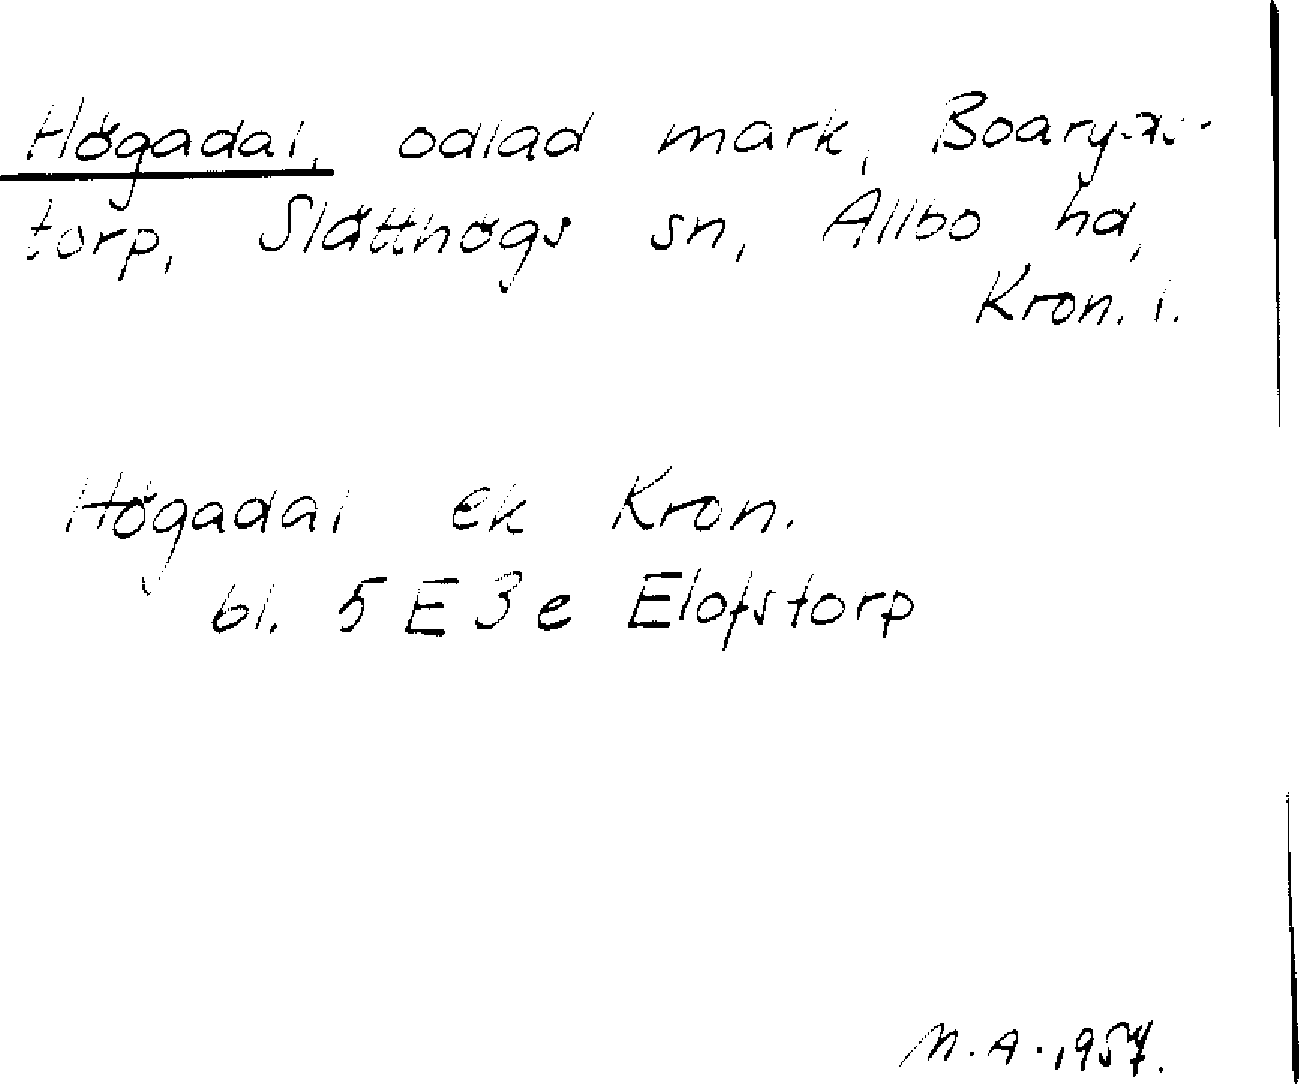 Högadal, odlad mark,
torp, Slätthögs sn, Allbo hd,
Kron. l.
Högadal ek Kron.
bl. 5 E 3 e Elofstorp
M.A. 1957.